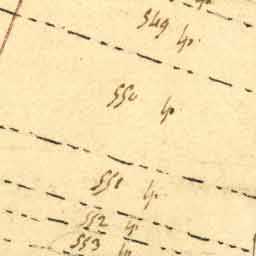 549 lp.
550 lp.
551 lp.
552 lp.
553 lp.